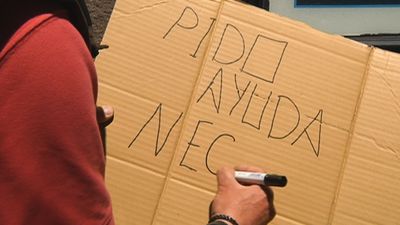 PIDO
AYUDA
NEC